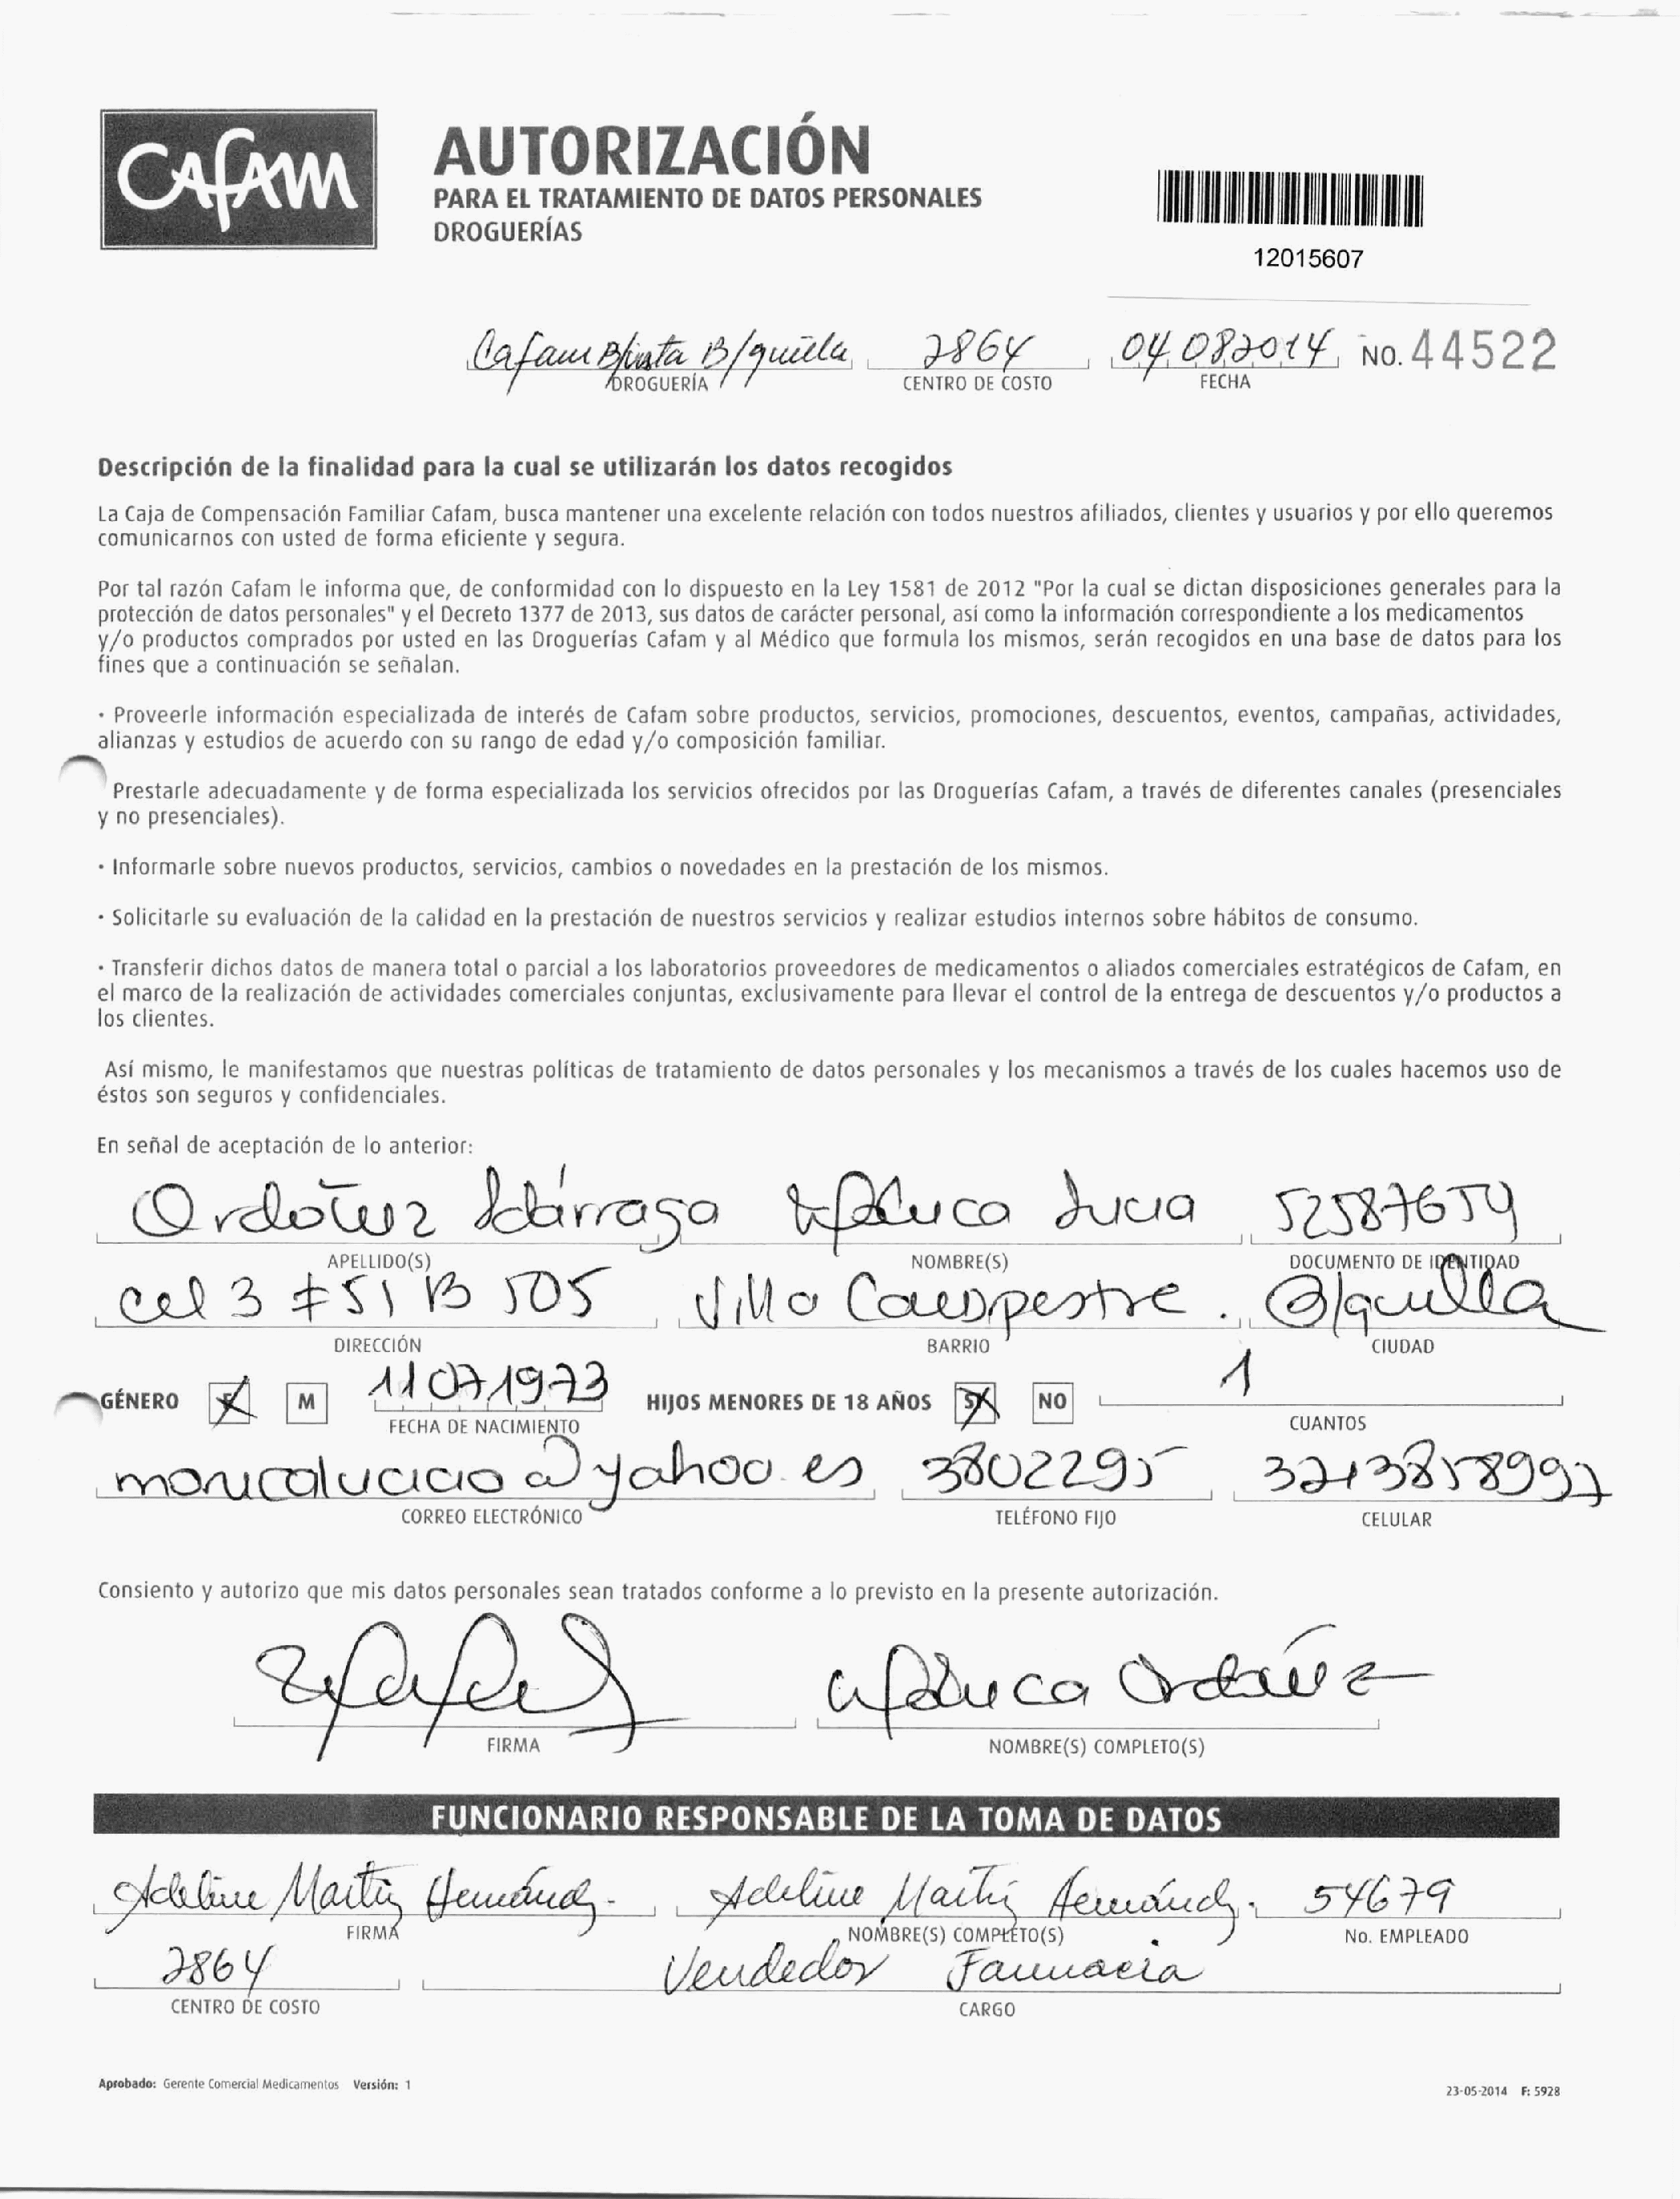 Cafam
AUTORIZACIÓN
PARA EL TRATAMIENTO DE DATOS PERSONALES
DROGUERÍAS
12015607
Cafam B/quilla 2864 04 08 2014 NO. 44522
DROGUERÍA CENTRO DE COSTO FECHA
Descripción de la finalidad para la cual se utilizarán los datos recogidos
La Caja de Compensación Familiar Cafam, busca mantener una excelente relación con todos nuestros afiliados, clientes y usuarios y por ello queremos
comunicarnos con usted de forma eficiente y segura.
Por tal razón Cafam le informa que, de conformidad con lo dispuesto en la Ley 1581 de 2012 "Por la cual se dictan disposiciones generales para la
protección de datos personales" y el Decreto 1377 de 2013, sus datos de carácter personal, así como la información correspondiente a los medicamentos
y/o productos comprados por usted en las Droguerías Cafam y al Médico que formula los mismos, serán recogidos en una base de datos para los
fines que a continuación se señalan.
· Proveerle información especializada de interés de Cafam sobre productos, servicios, promociones, descuentos, eventos, campañas, actividades,
alianzas y estudios de acuerdo con su rango de edad y/o composición familiar.
Prestarle adecuadamente y de forma especializada los servicios ofrecidos por las Droguerías Cafam, a través de diferentes canales (presenciales
y no presenciales).
· Informarle sobre nuevos productos, servicios, cambios o novedades en la prestación de los mismos.
· Solicitarle su evaluación de la calidad en la prestación de nuestros servicios y realizar estudios internos sobre hábitos de consumo.
· Transferir dichos datos de manera total o parcial a los laboratorios proveedores de medicamentos o aliados comerciales estratégicos de Cafam, en
el marco de la realización de actividades comerciales conjuntas, exclusivamente para llevar el control de la entrega de descuentos y/o productos a
los clientes.
Así mismo, le manifestamos que nuestras políticas de tratamiento de datos personales y los mecanismos a través de los cuales hacemos uso de
éstos son seguros y confidenciales.
En señal de aceptación de lo anterior:
Ordoñez Idárraga Mónica Lucia 52587654
APELLIDO(S) NOMBRE(S) DOCUMENTO DE IDENTIDAD
cll 3 #51 B 505 Villa Campestre. B/quilla
DIRECCIÓN BARRIO CIUDAD
GÉNERO F M 11071973 HIJOS MENORES DE 18 AÑOS SI NO 1
FECHA DE NACIMIENTO CUANTOS
monicalucicio@yahoo.es 3802295 3213858997
CORREO ELECTRÓNICO TELÉFONO FIJO CELULAR
Consiento y autorizo que mis datos personales sean tratados conforme a lo previsto en la presente autorización.
Mónica Ordóñez
FIRMA NOMBRE(S) COMPLETO(S)
FUNCIONARIO RESPONSABLE DE LA TOMA DE DATOS
Adeline Martínez Hernández. Adeline Martínez Hernández. 54679
FIRMA NOMBRE(S) COMPLETO(S) No. EMPLEADO
2864 Vendedor Farmacia
CENTRO DE COSTO CARGO
Aprobado: Gerente Comercial Medicamentos Versión: 1
23-05-2014 F: 5928